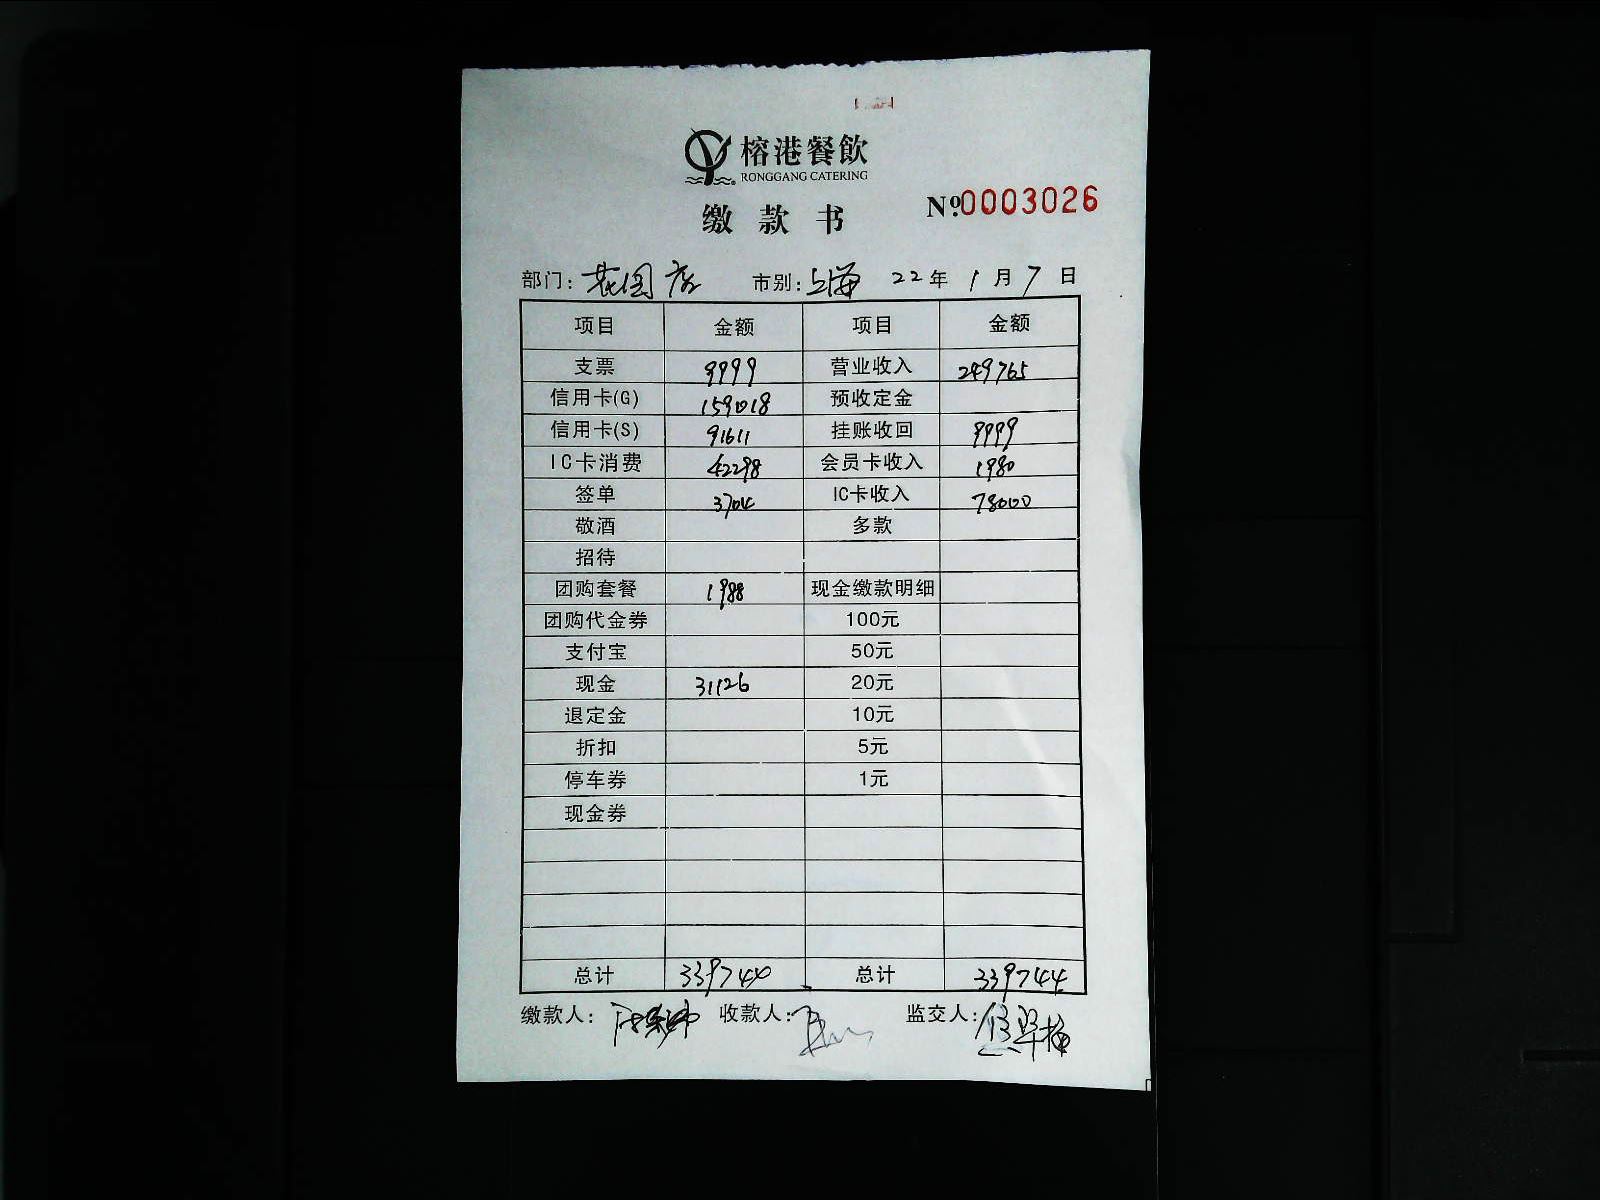 榕港餐飲
RONGGANG CATERING
缴款书
№0003026
部门：花园店 市别：上海 22年1月7日
项目 金额 项目 金额
支票 9999 营业收入 249765
信用卡(G) 159018 预收定金
信用卡(S) 91611 挂账收回 9999
IC卡消费 42298 会员卡收入 1980
签单 3704 IC卡收入 78000
敬酒 多款
招待
团购套餐 1988 现金缴款明细
团购代金券 100元
支付宝 50元
现金 31126 20元
退定金 10元
折扣 5元
停车券 1元
现金券
总计 339744 总计 339744
缴款人： 收款人： 监交人：